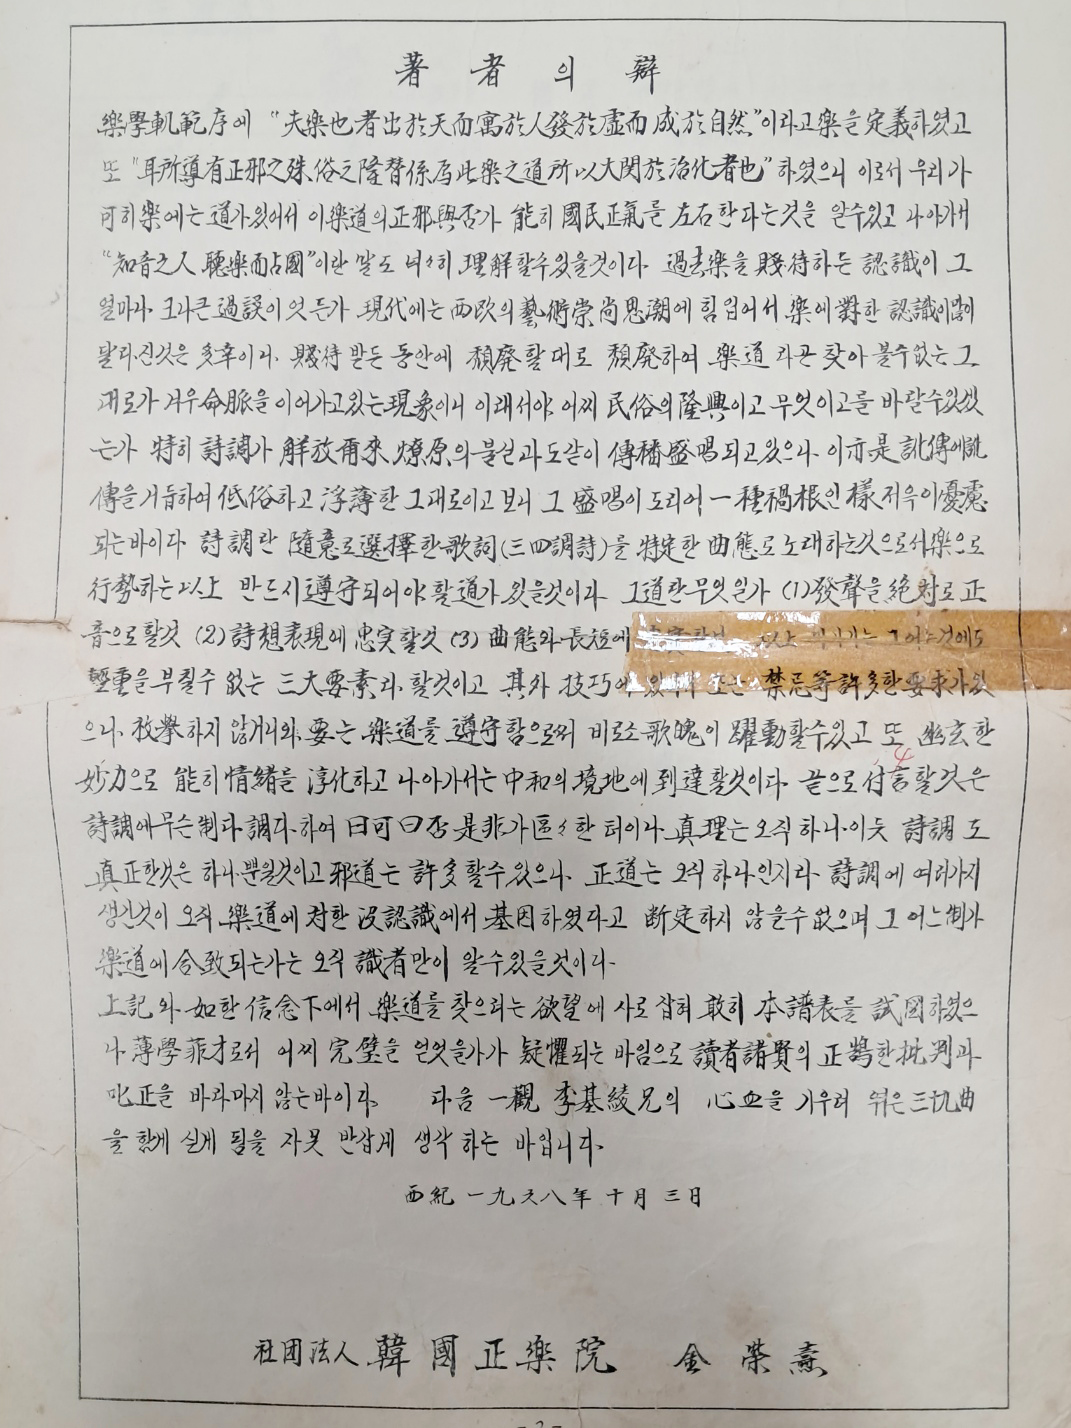 著者의 辯
樂學軌範序에 "夫楽也者出於天而寓於人發於虛而成於自然"이라고楽을 定義하였고
또 "耳所導有正邪之殊俗之隆替係焉此楽之道所以大関於治化者也" 하였으니 이로서 우리가
可히楽에는 道가있어서 이楽道의正邪與否가 能히 國民正氣를 左右한다는것을 알수있고 나아가서
"知音之人 聽楽而占國"이란 말도 넉넉히 理解할수있을것이다 過去楽을 賤待하든 認識이 그
얼마나 크나큰 過誤이엇든가 現代에는西欧의藝術崇尚思潮에 힘입어서 楽에對한 認識이많이
달라진것은 多幸이나 賤待받든 동안에 頹廢할대로 頹廢하여 楽道라곤 찾아 볼수없는 그
대로가 겨우命脈을이어가고있는現象이니 이래서야 어찌 民俗의隆興이고무엇이고를 바랄수있겠
는가 特히 詩調가 解放爾來 燎原의불실과도같이 傳播盛唱되고있으나 이亦是 訛傳에訛
傳을거듭하여 低俗하고 浮薄한 그대로이고보니 그 盛唱이도리어 一種禍根인樣 저윽이憂慮
되는바이다 詩調란 隨意로選擇한歌詞(三四調詩)를 特定한 曲態로노래하는것으로서楽으로
行勢하는以上 반드시遵守되어야할道가있을것이다 그道란무엇일가 (1)發聲을絶対로正
音으로할것 (2)詩想表現에 忠実할것 (3) 曲態와長短에
輕重을부칠수 없는 三大要素라 할것이고 其外 技巧에 있어서 또는 禁忌等許多한要求가있
으나 枚擧하지 않거니와 要는 楽道를 遵守함으로써 비로소歌魂이 躍動할수있고 또 幽玄한
妙力으로 能히情緒를 淳化하고 나아가서는中和의境地에到達할것이다 끝으로付言할것은
詩調에무슨制다調다하여 曰可曰否 是非가區々한 터이나 眞理는오직하나이듯 詩調도
眞正한것은 하나뿐일것이고邪道는 許多할수있으나 正道는 오직하나인지라 詩調에여러가지
생긴것이 오직 楽道에対한沒認識에서基因하였다고 断定하지 않을수없으며 그 어느制가
楽道에合致되는가는 오직 識者만이 알수있을것이다
上記와 如한信念下에서 楽道를찾으려는 欲望에 사로잡혀 敢히 本譜表를 試図하였으
나 薄學菲才로서 어찌 完璧을 얻었을가가 疑懼되는 바임으로 讀者諸賢의 正鵠한批判과
叱正을 바라마지 않는바이다 다음 一觀 李基綾兄의 心血을 기우려 엮은三机曲
을함께 싣게 됨을 자못 반갑게 생각 하는 바입니다
西紀 一九六八年 十月 三日
社団法人 韓國正楽院 金榮熹
-2-